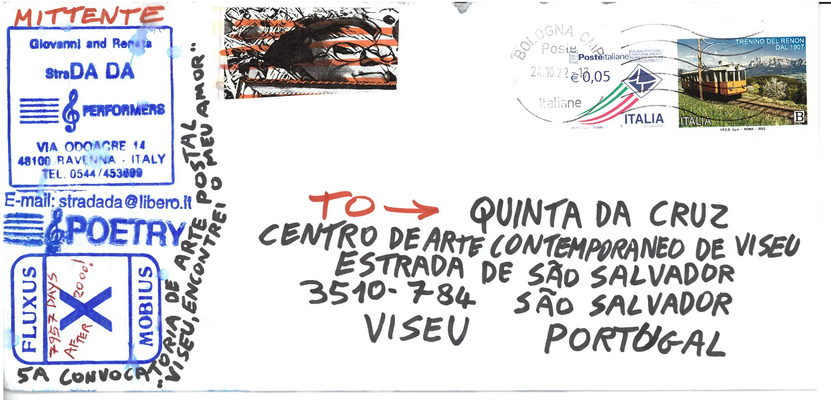 MITTENTE
Giovanni and Renata
StraDA DA
PERFORMERS
VIA ODOACRE 14
48100 RAVENNA - ITALY
TEL. 0544/453699
E-mail: stradada@libero.it
POETRY
FLUXUS
7957 DAYS
AFTER 2000!
X
MOBIUS
5A CONVOCATORIA DE ARTE POSTAL
"VISEU, ENCONTREI O MEU AMOR"
BOLOGNA CMP
Poste
24.10.22
Italiane
Posteitaliane
€0,05
ITALIA
TRENINO DEL RENON
DAL 1907
ITALIA
B
TO → QUINTA DA CRUZ
CENTRO DE ARTE CONTEMPORANEO DE VISEU
ESTRADA DE SÃO SALVADOR
3510-784 SÃO SALVADOR
VISEU PORTUGAL